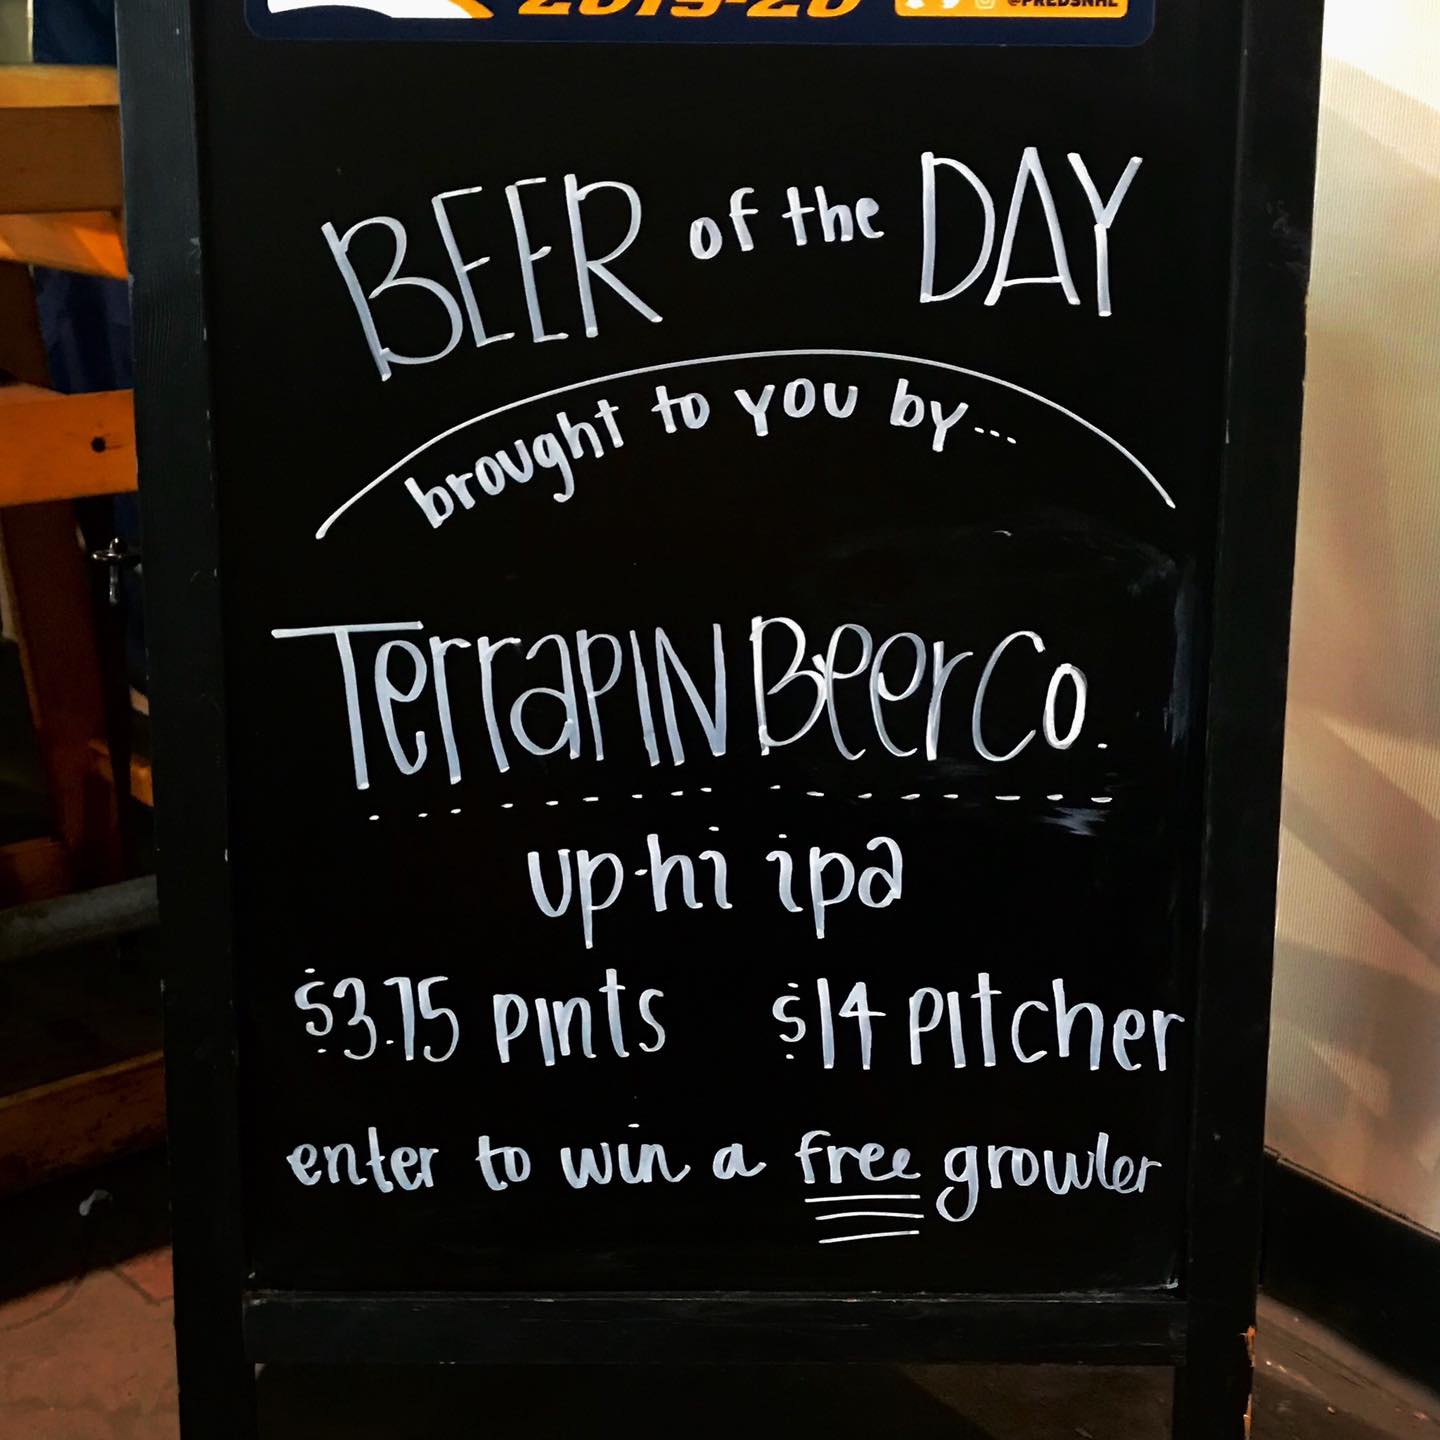 2019-20 @PREDSNHL
BEER of the DAY
brought to you by...
TerraPIN Beer Co.
up-hi ipa
$3.75 PINts $14 PItcher
enter to win a free growler